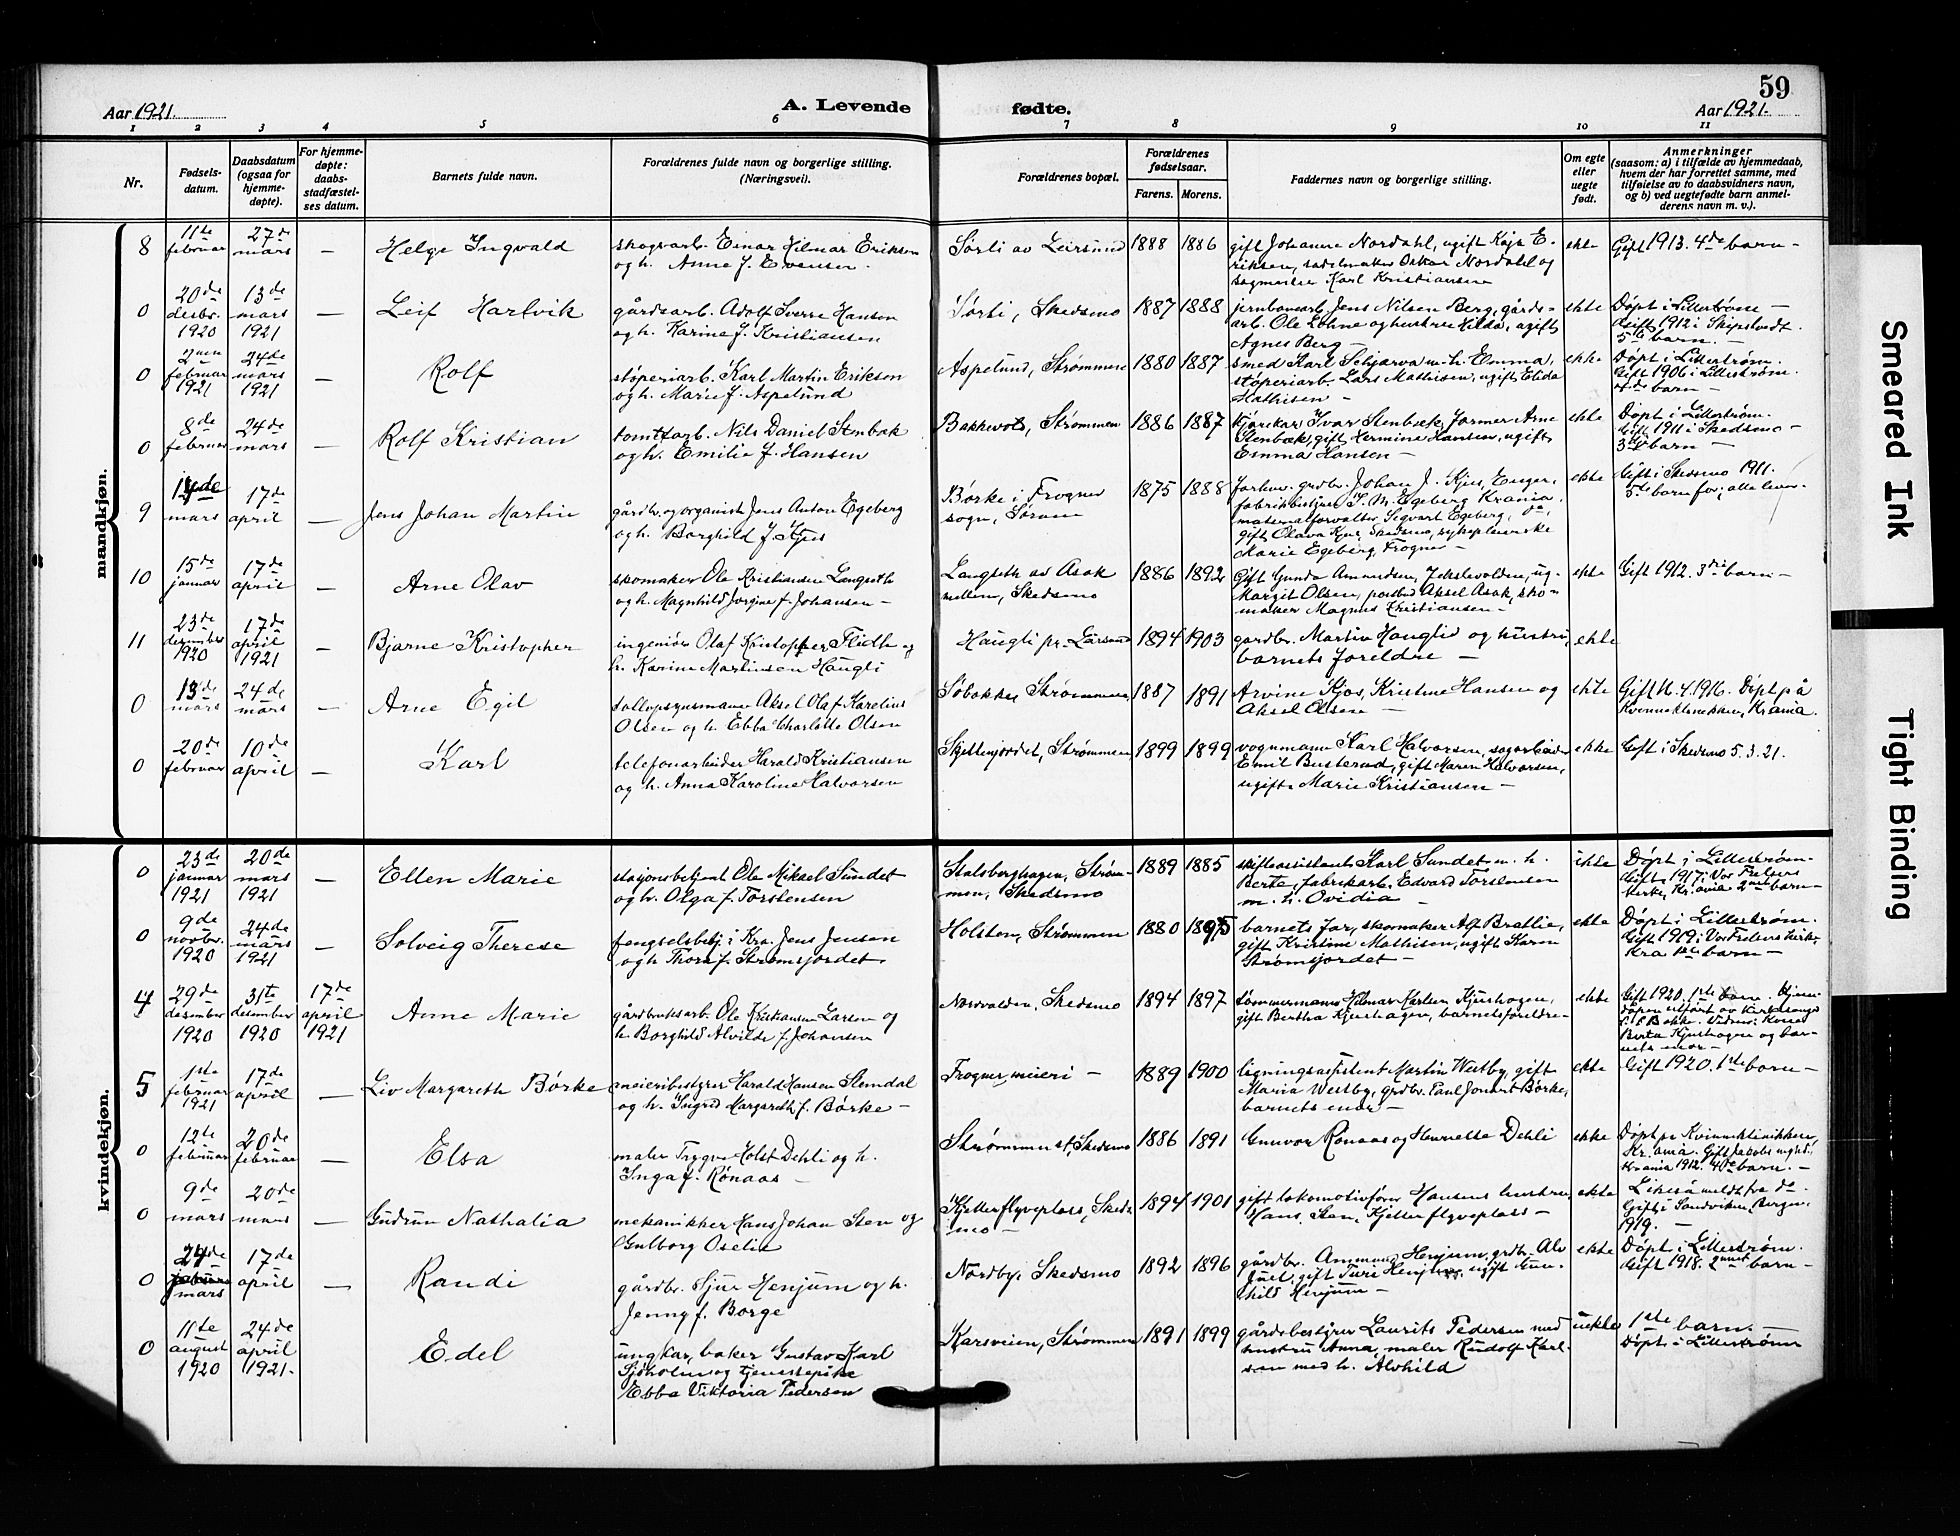 59
Aar 1921.
A. Levende
fødte.
Aar 1921.
1 2 3 4 5 6 7 8 9 10 11
Nr.
Fødsels-
datum.
Daabsdatum
(ogsaa for
hjemme-
døpte).
For hjemme-
døpte:
daabs-
stadfæstel-
ses datum.
Barnets fulde navn.
Forældrenes fulde navn og borgerlige stilling.
(Næringsvei.)
Forældrenes bopæl.
Forældrenes
fødselsaar.
Farens. Morens.
Faddernes navn og borgerlige stilling.
Om egte
eller
uegte
født.
Anmerkninger
(saasom: a) i tilfælde av hjemmedaab,
hvem der har forrettet samme, med
tilføielse av to daabsvidners navn,
og b) ved uegtefødte barn anmel-
derens navn m. v.).
mandkjøn.
8
11te
februar
27de
mars
—
Helge Ingvald
skogsarb. Einar Hilmar Eriksen
og h. Anne f. Evensen.
Sørli av Leirsund
1888 1886
gift Johanne Nordahl, ugift Kaja E-
riksen, sadelmaker Oskar Nordahl og
sagmester Karl Kristiansen
ekte
Gift 1913. 4de barn –
0
20de
desbr.
1920
13de
mars
1921
—
Leif Hartvik
gårdsarb. Adolf Sverre Hansen
og h. Karine f. Kristiansen
Sørli, Skedsmo
1887 1888
jernbanearb. Jens Nilsen Berg, gårds-
arb. Ole Lohne og hustru Hilda, ugift
Agnes Berg —
ekte
Døpt i Lillestrøm —
Gift 1912 i Skiptvedt.
5te barn. —
0
2nen
februar
1921
24de
mars
1921
—
Rolf
støperiarb. Karl Martin Eriksen
og h. Marie f. Aspelund
Aspelund, Strømmen
1880 1887
smed Karl Schjarva m. h. Emma,
støperiarb. Lars Mathisen, ugift Elida
Mathisen —
ekte
Døpt i Lillestrøm.
Gift 1906 i Lillestrøm.
barn —
0
8de
februar
24de
mars
—
Rolf Kristian
tomtearb. Nils Daniel Stenbæk
og h. Emilie f. Hansen
Bakkevols, Strømmen
1886 1887
kjørekar Ivar Stenbæk, former Arne
Stenbæk, gift Hermine Hansen, ugift
Emma Hansen —
ekte
Døpt i Lillestrøm.
Gift 1911 i Skedsmo —
3dje barn —
9
mars
17de
april
—
Jens Johan Martin
gårdbr. og organist Jens Anton Egeberg
og h. Borghild f. Kjus
Børke i Frogner
sogn, Sørum
1875 1888
forhev. grdbr. Johan J. Kjus, Enger,
fabrikbestyrer J. M. Egeberg Krania.
materialforvalter Sigvart Egeberg, do,
gift Olava Kjus, Skedsmo, sykepleierske
Marie Egeberg, Frogner —
ekte
Gift i Skedsmo 1911.
5te barn før; alle lever.
10
15de
januar
17de
april
—
Arne Olav
skomaker Ole Kristiansen Langseth
og h. Magnhild Jorgine f. Johansen —
Langseth av Asak
mellem, Skedsmo
1886 1892
Gift Gunda Amundsen, Jekslevolden, ug-
Margit Olsen, postbud Aksel Asak, sko-
maker Magnus Kristiansen —
ekte
Gift 1912. 3dje barn —
11
23de
desember
1920
17de
april
1921
—
Bjarne Kristopher
ingeniør Olaf Kristopher Flidh og
h. Karine Martinsen Haugli
Haugli pr. Lørsund
1894 1903
gardbr. Martin Hauglid og hustru,
barnets foreldre —
ekte
0
13de
mars
24de
mars
—
Arne Egil
tollopsynsmann Aksel Olaf Karelius
Olsen og h. Ebba Charlotte Olsen
Søbakken Strømmen
1887 1891
Arvine Kjos, Kristine Hansen og
Aksel Olsen —
ekte
Gift 16.4.1916. Døpt på
Kvinneklinikken, Krania.
0
20de
februar
10de
april
—
Karl
telefonarbeider Harald Kristiansen
og h. Anna Karoline Halvorsen
Skjettenjordet, Strømmen
1899 1899
vognmann Karl Halvorsen, sagarbeider
Emil Busterud, gift Maren Halvorsen,
ugift Marie Kristiansen —
ekte
Gift i Skedsmo 5.3.21.
kvindekjøn.
0
23de
januar
1921
20de
mars
1921
—
Ellen Marie
stasjonsbetjent Ole Mikael Sundet
og h. Olga f. Torstensen
Stalsberghagen, Strøm-
men, Skedsmo
1889 1885
skifteassistent Karl Sundet m. h.
Berte, fabrikarb. Edvard Torstensen
m. h. Ovidia —
ekte
Døpt i Lillestrøm —
Gift 1917 i Vor Frelsers
kirke, Kr.ania 2net barn —
0
9de
novbr.
1920
24de
mars
1921
—
Solveig Therese
fengselsbetj. i Kra. Jens Jensen
og h. Thora f. Strømsjordet.
Holsten, Strømmen
1880 1895
barnets far, skomaker Alf Brattlie,
gift Kristine Mathisen, ugift Karen
Strømsjordet —
ekte
Døpt i Lillestrøm.
Gift 1919 i Vor Frelsers kirke,
Kra 1ste barn —
4
29de
desember
1920
31te
desember
1920
17de
april
1921
Anne Marie
gårdbruksarb. Ole Kristiansen Larsen og
h. Borghild Alvilde f. Johansen
Nordvalden, Skedsmo
1894 1897
tømmermann Hilmar Karlsen Kjushagen,
gift Bertha Kjushagen, barnets foreldre —
ekte
Gift 1920. 1ste barn. Hjem-
døpen utført av kirkesanger
Bakke. Vidner: Kona
Berta Kjushagen og bar-
nets mor —
5
1ste
februar
1921
17de
april
—
Liv Margareth Børke
meieribestyrer Harald Hansen Stemdal
og h. Ingrid Margareth f. Børke —
Frogner meieri —
1889 1900
ligningsassistent Martin Westby, gift
Maria Westby, grdbr. Paul Børke,
barnets mor —
ekte
Gift 1920. 1ste barn —
0
12te
februar
20de
februar
—
Elsa
maler Trygve Holst Dehli og h.
Inga f. Rönaas —
Strømmen st., Skedsmo
1886 1891
Gunvor Rönaas og Henriette Dehli
ekte
Døpt pr Kvinneklinikken,
Kr.ania. Gift Jakobs
Krania 1912. 4de barn. —
0
9de
mars
20de
mars
—
Gudrun Nathalia
mekanikker Hans Johan Sten og
Gulborg Oselie
Kjeller flyveplass, Skeds-
mo —
1894 1901
gift lokomotivfører Hansens hustru,
Hans Sten, Kjeller flyveplass —
ekte
Likeså meldt fra do.
Gift i Sandviken, Bergen,
1919. —
0
24de
mars
17de
april
—
Randi
gårdbr. Sjur Henjum og h.
Jenny f. Borge
Nordby, Skedsmo
1892 1896
gårdbr. Ammund Henjum, grdbr. Alv
Juel, gift Turi Henjum, ugift Gun-
hild Henjum —
ekte
Døpt i Lillestrøm.
Gift 1918. 2net barn —
0
11te
august
1920
24de
april
1921.
Edel
ungkar, baker Gustav Karl
Sjøholm og tjenestepike
Ebba Viktoria Pedersen
Karsveien, Strømmen
1891 1899
gårdsbestyrer Laurits Pedersen med
hustru Anna, maler Rudolf Karl-
sen med h. Alvhild
uekte
1ste barn. —
Døpt i Lillestrøm
Smeared Ink
Tight Binding